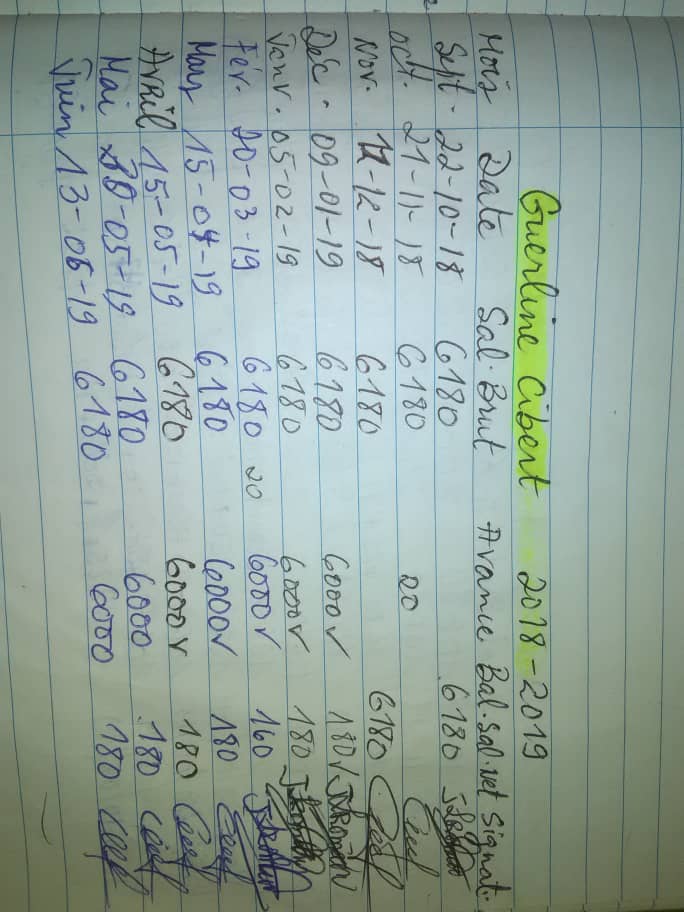 Guerline Cibert 2018-2019
Mois Date Sal. Brut Avance Bal. Sal. Net Signat.
Sept. 22-10-18 6180 6180
Oct. 21-11-18 6180 20
Nov. 12-18 6180 6180
Déc. 09-01-19 6180 6000 v 180 v
Janv. 05-02-19 6180 6000 v 180
Fév. 20-03-19 6180 20 6000 v 160
Mars 15-04-19 6180 6000 v 180
Avril 15-05-19 6180 6000 v 180
Mai -05-19 6180 6000 180
Juin 13-06-19 6180 6000 180